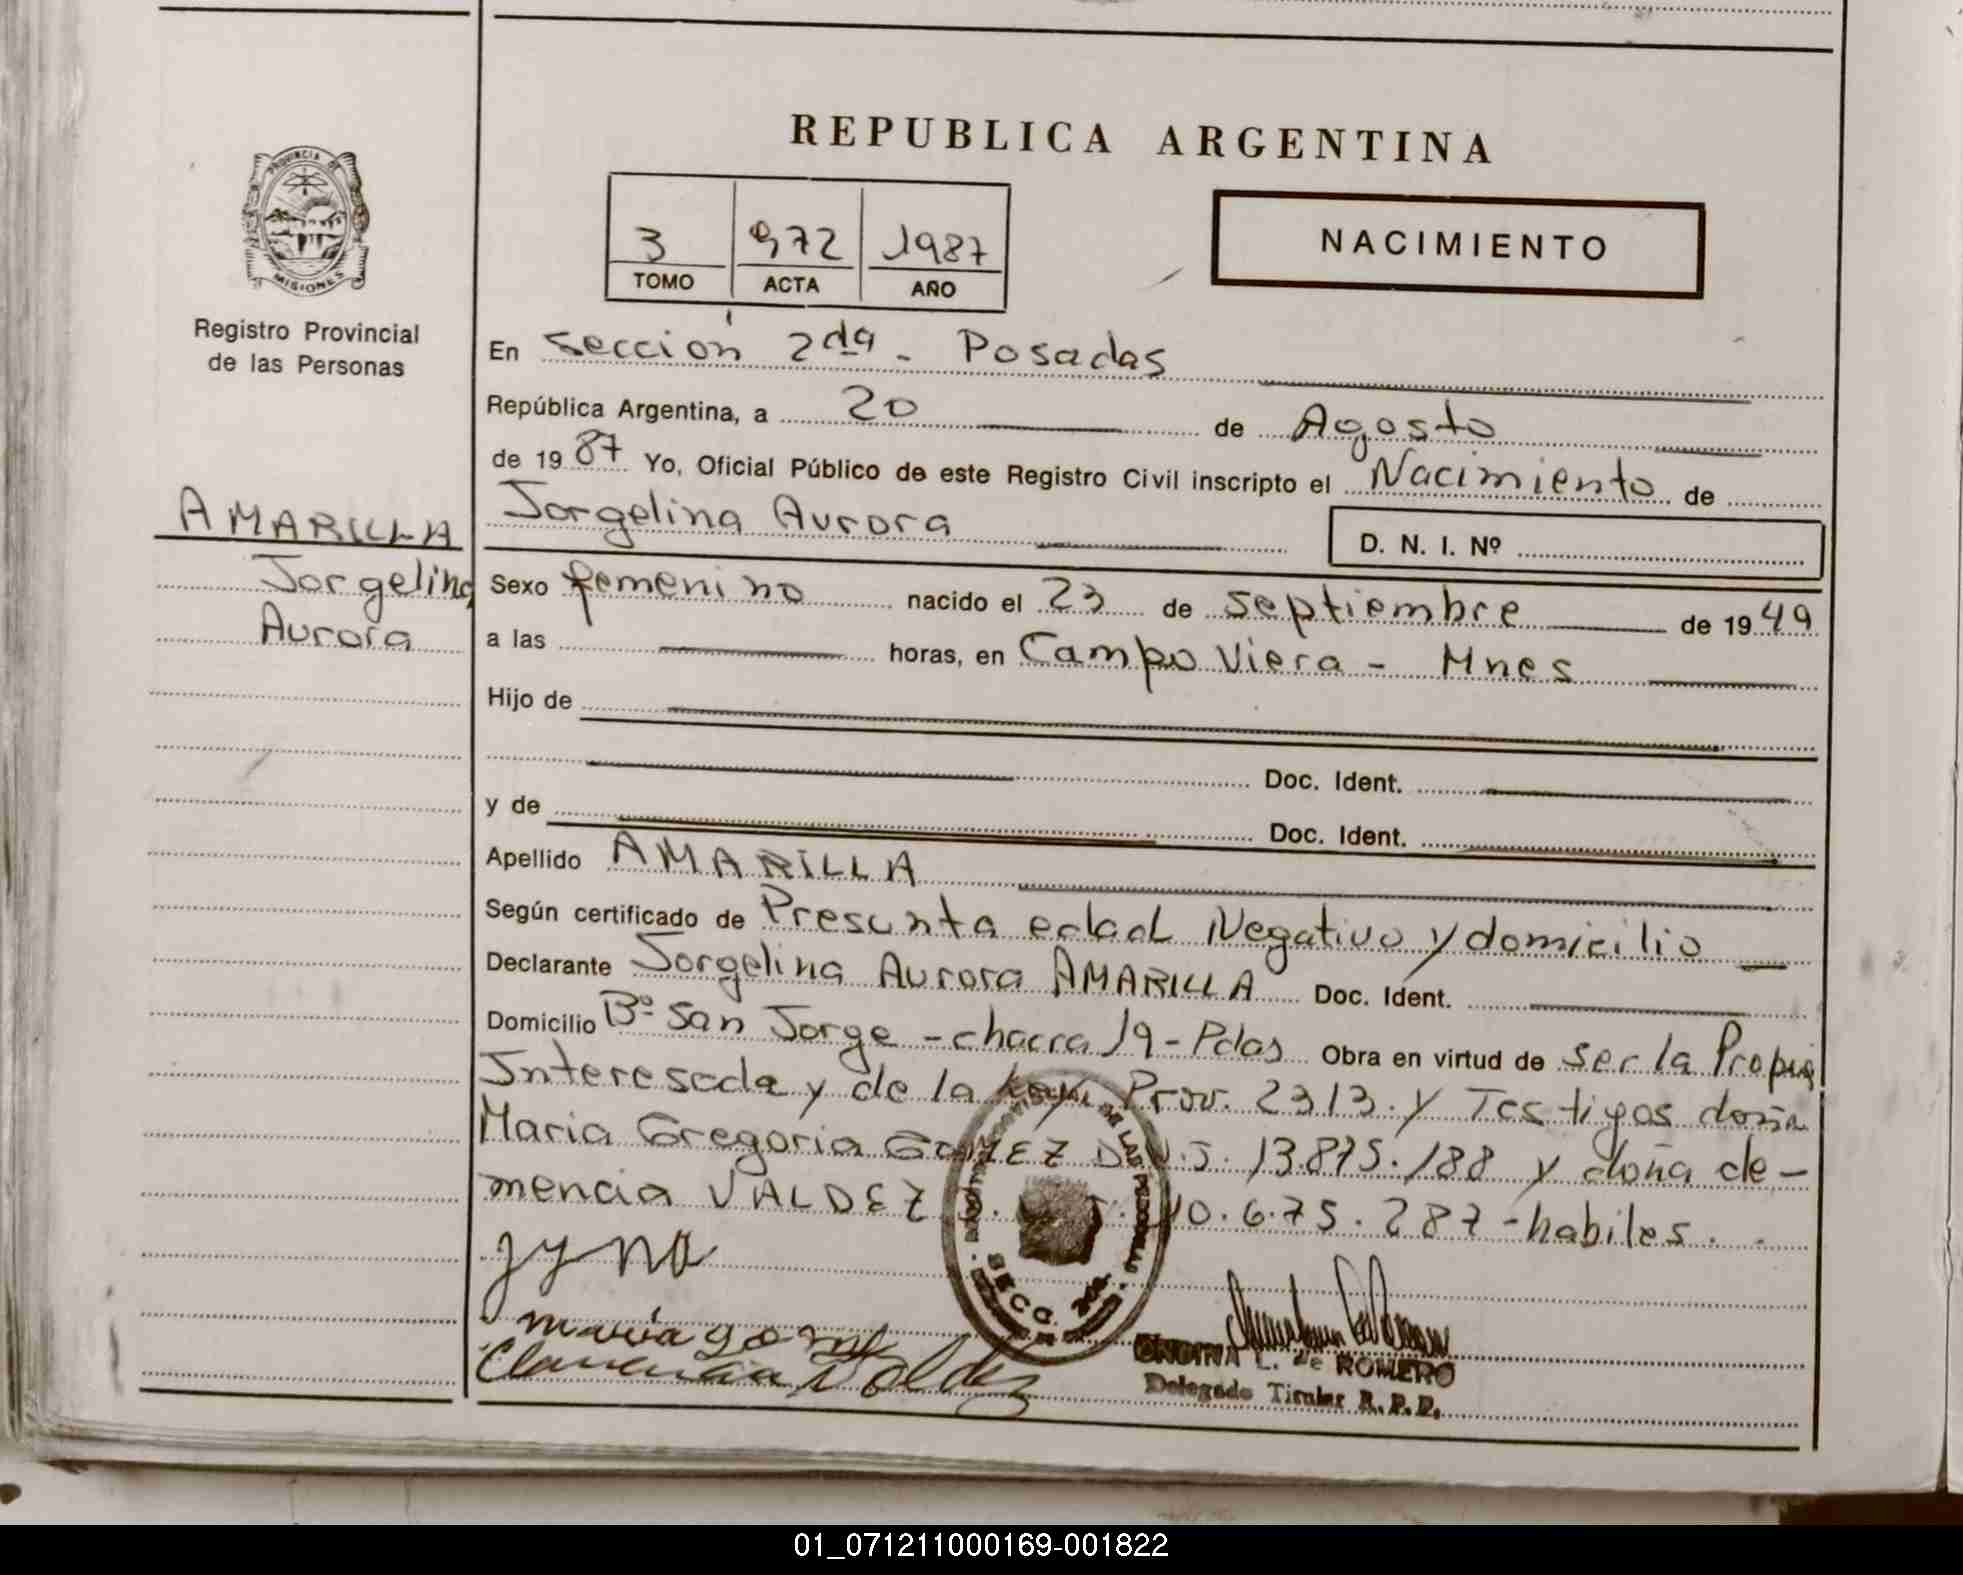 REPUBLICA ARGENTINA
PROVINCIA DE
MISIONES
Registro Provincial
de las Personas
3 972 1987
TOMO ACTA AÑO
NACIMIENTO
En Sección 2da - Posadas
República Argentina, a 20 de Agosto
de 1987 Yo, Oficial Público de este Registro Civil inscripto el Nacimiento de
Jorgelina Aurora
D. N. I. Nº
AMARILLA
Jorgelina
Aurora
Sexo femenino nacido el 23 de septiembre de 1949
a las horas, en Campo Viera - Mnes
Hijo de
Doc. Ident.
y de Doc. Ident.
Apellido AMARILLA
Según certificado de Presunta edad Negativo y domicilio
Declarante Jorgelina Aurora AMARILLA Doc. Ident.
Domicilio Bº San Jorge - chacra 19 - Pdas Obra en virtud de ser la Propia
Interesada y de la Ley Prov. 2313. y Testigos doña
Maria Gregoria GOMEZ D.N.I. 13.875.188 y doña cle-
mencia VALDEZ 10.675.287 - habiles.
maria gome
Clemencia Valdez
SECC. 2da.
ONDINA L. de ROMERO
Delegado Titular R.P.P.
01_071211000169-001822